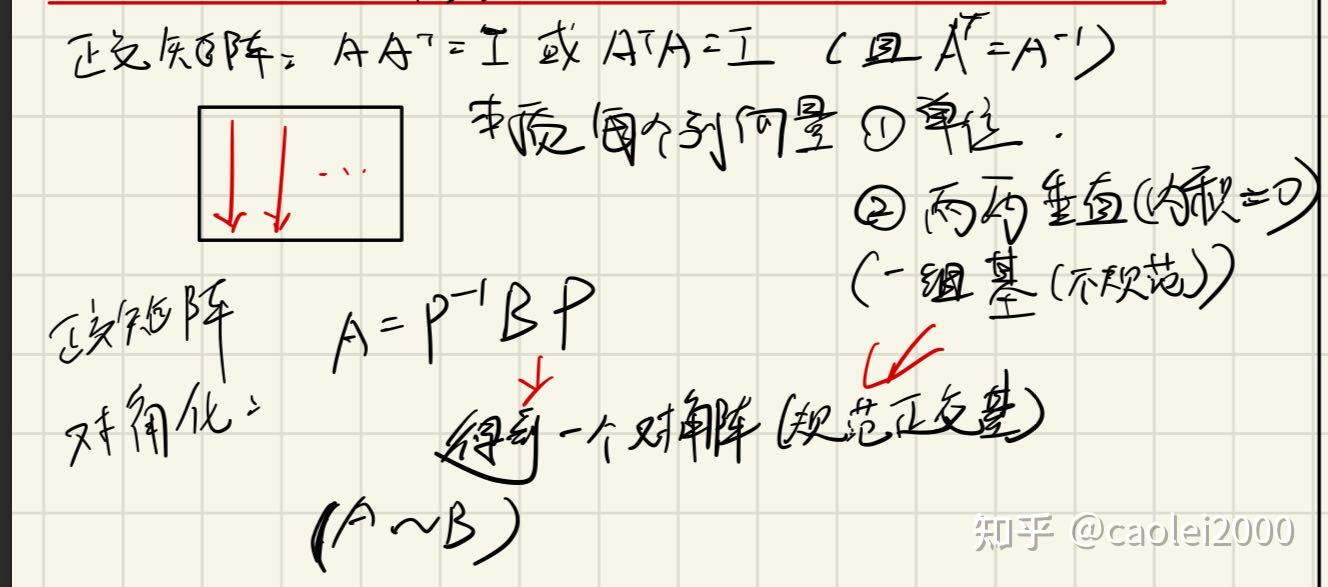 正交矩阵: AAᵀ=I 或 AᵀA=I (且 Aᵀ=A⁻¹)
本质 每个列向量 ① 单位.
② 两两垂直(内积=0)
(一组基(不规范))
正交矩阵 A=P⁻¹BP
对角化: 得到一个对角阵(规范正交基)
(A~B)
知乎 @caolei2000